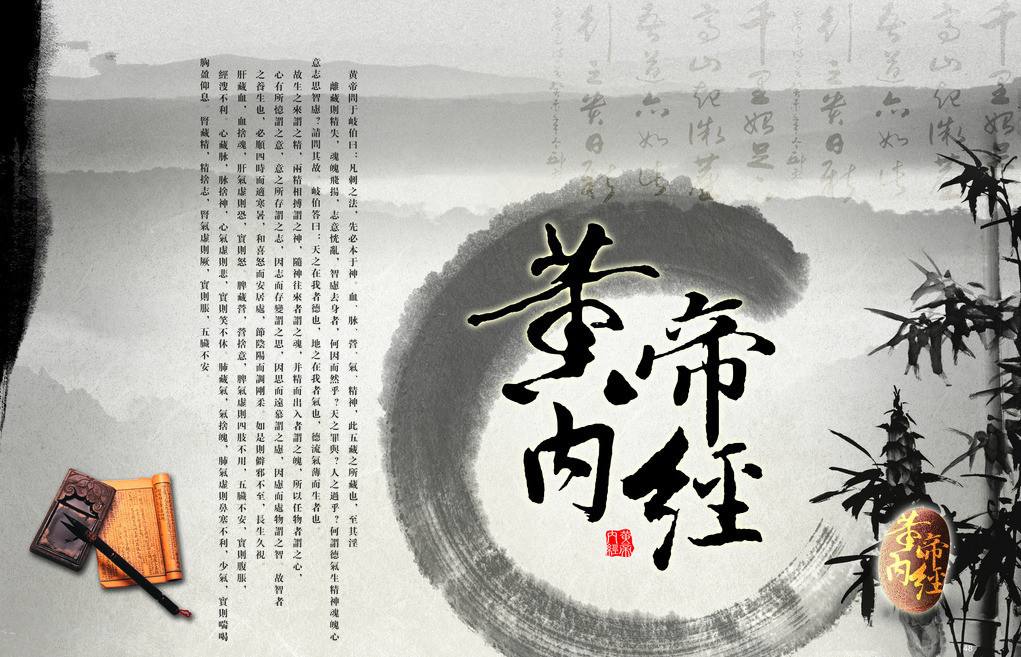 千里始足
高山起微塵
吾道亦如此
黄帝
内經
黄帝内經
黄帝
内經
黄帝問于岐伯曰：凡刺之法，先必本于神。血、脉、營、氣、精神，此五藏之所藏也，至其淫
離藏則精失，魂魄飛揚，志意恍亂，智慮去身者，何因而然乎？天之罪與？人之過乎？何謂德氣生精神魂魄心
意志思智慮？請問其故。岐伯答曰：天之在我者德也，地之在我者氣也，德流氣薄而生者也
故生之來謂之精，兩精相搏謂之神，隨神往來者謂之魂，并精而出入者謂之魄，所以任物者謂之心，
心有所憶謂之意，意之所存謂之志，因志而存變謂之思，因思而遠慕謂之慮，因慮而處物謂之智 故智者
之養生也，必順四時而適寒暑，和喜怒而安居處，節陰陽而調剛柔 如是則僻邪不至，長生久視
肝藏血，血捨魂，肝氣虛則恐，實則怒 脾藏營，營捨意，脾氣虛則四肢不用，五臟不安，實則腹脹，
經溲不利 心藏脉，脉捨神，心氣虛則悲，實則笑不休 肺藏氣，氣捨魄，肺氣虛則鼻塞不利，少氣，實則喘喝
胸盈仰息 腎藏精，精捨志，腎氣虛則厥，實則脹，五臟不安
48